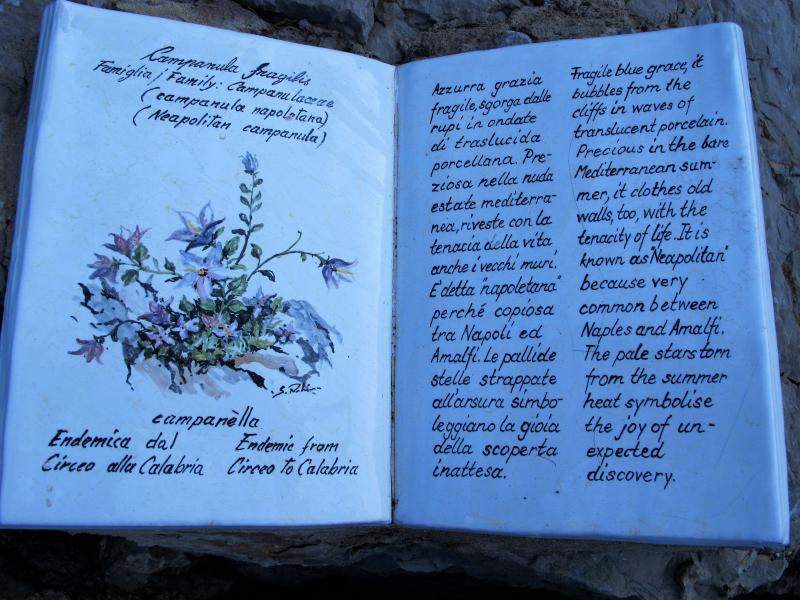 Campanula fragilis
Famiglia / Family: Campanulaceae
(campanula napoletana)
(Neapolitan campanula)
campanèlla
Endemica dal
Circeo alla Calabria
Endemic from
Circeo to Calabria
Azzurra grazia
fragile, sgorga dalle
rupi in ondate
di traslucida
porcellana. Pre-
ziosa nella nuda
estate mediterra-
nea, riveste con la
tenacia della vita
anche i vecchi muri.
E' detta "napoletana"
perché copiosa
tra Napoli ed
Amalfi. Le pallide
stelle strappate
all'arsura simbo-
leggiano la gioia
della scoperta
inattesa.
Fragile blue grace, it
bubbles from the
cliffs in waves of
translucent porcelain.
Precious in the bare
Mediterranean sum-
mer, it clothes old
walls, too, with the
tenacity of life. It is
known as Neapolitan'
because very
common between
Naples and Amalfi.
The pale stars torn
from the summer
heat symbolise
the joy of un-
expected
discovery.